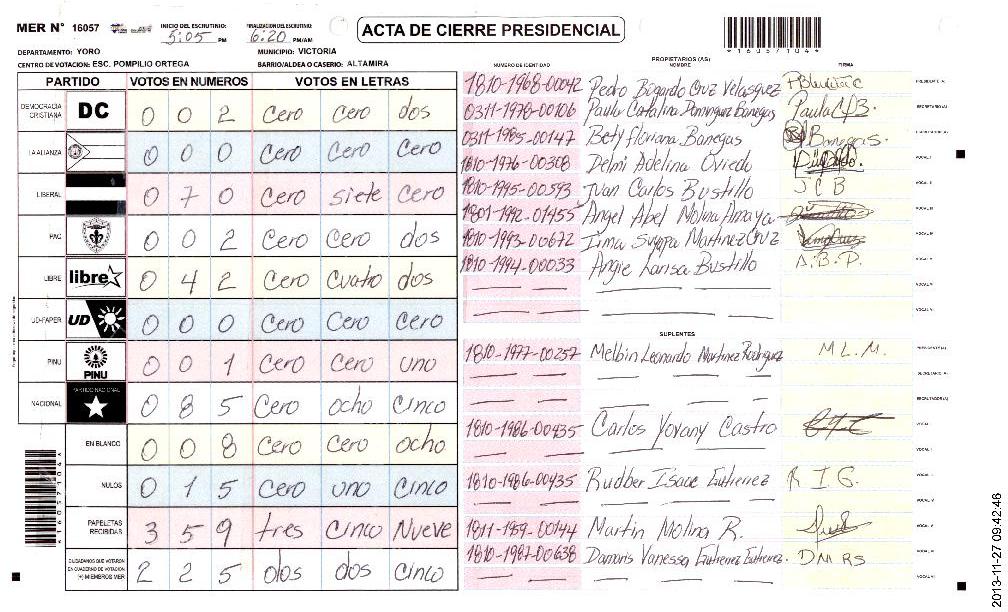 MER N° 16057 INICIO DEL ESCRUTINIO: 5:05 PM FINALIZACIÓN DEL ESCRUTINIO: 6:20 PM/AM
ACTA DE CIERRE PRESIDENCIAL
*16057104*
DEPARTAMENTO: YORO MUNICIPIO: VICTORIA
CENTRO DE VOTACION: ESC. POMPILIO ORTEGA BARRIO/ALDEA O CASERIO: ALTAMIRA
PARTIDO VOTOS EN NUMEROS VOTOS EN LETRAS
DEMOCRACIA CRISTIANA DC 0 0 2 Cero Cero dos
LA ALIANZA 0 0 0 Cero Cero Cero
LIBERAL 0 7 0 Cero siete cero
PAC 0 0 2 Cero Cero dos
LIBRE libre 0 4 2 Cero Cuatro dos
UD-FAPER UD 0 0 0 Cero Cero Cero
PINU PINU 0 0 1 Cero Cero uno
NACIONAL PARTIDO NACIONAL 0 8 5 Cero ocho Cinco
EN BLANCO 0 0 8 Cero Cero ocho
NULOS 0 1 5 Cero uno Cinco
PAPELETAS RECIBIDAS 3 5 9 tres Cinco Nueve
CIUDADANOS QUE VOTARON EN CUADERNO DE VOTACION (+) MIEMBROS MER 2 2 5 dos dos Cinco
*16057104*
PROPIETARIOS (AS)
NUMERO DE IDENTIDAD NOMBRE FIRMA
1810-1968-00042 Pedro Bogardo Cruz Velasquez PRESIDENTE (A)
0311-1978-00106 Paula Catalina Dominguez Banegas Paula SECRETARIO (A)
0311-1985-00147 Bety Floriana Banegas Banegas ESCRUTADOR (A)
1810-1976-00308 Delmi Adelina Oviedo VOCAL I
1810-1995-00593 Juan Carlos Bustillo J C B VOCAL II
1801-1992-01455 Angel Abel Molina Amaya VOCAL III
1810-1993-00672 Irma Suyapa Martinez Cruz VOCAL IV
1810-1994-00033 Angie Larisa Bustillo A.B.P. VOCAL V
VOCAL VI
VOCAL VII
SUPLENTES
1810-1977-00257 Melbin Leonardo Martinez Rodriguez M L. M. PRESIDENTE (A)
SECRETARIO (A)
ESCRUTADOR (A)
1810-1986-00435 Carlos Yovany Castro VOCAL I
VOCAL II
1810-1986-00435 Rudber Isaac Gutierrez R I G. VOCAL III
VOCAL IV
1811-1959-00144 Martin Molina R. VOCAL V
1810-1987-00638 Damaris Vanessa Gutierrez Gutierrez. D M R S VOCAL VI
VOCAL VII
2013-11-27 09:42:46